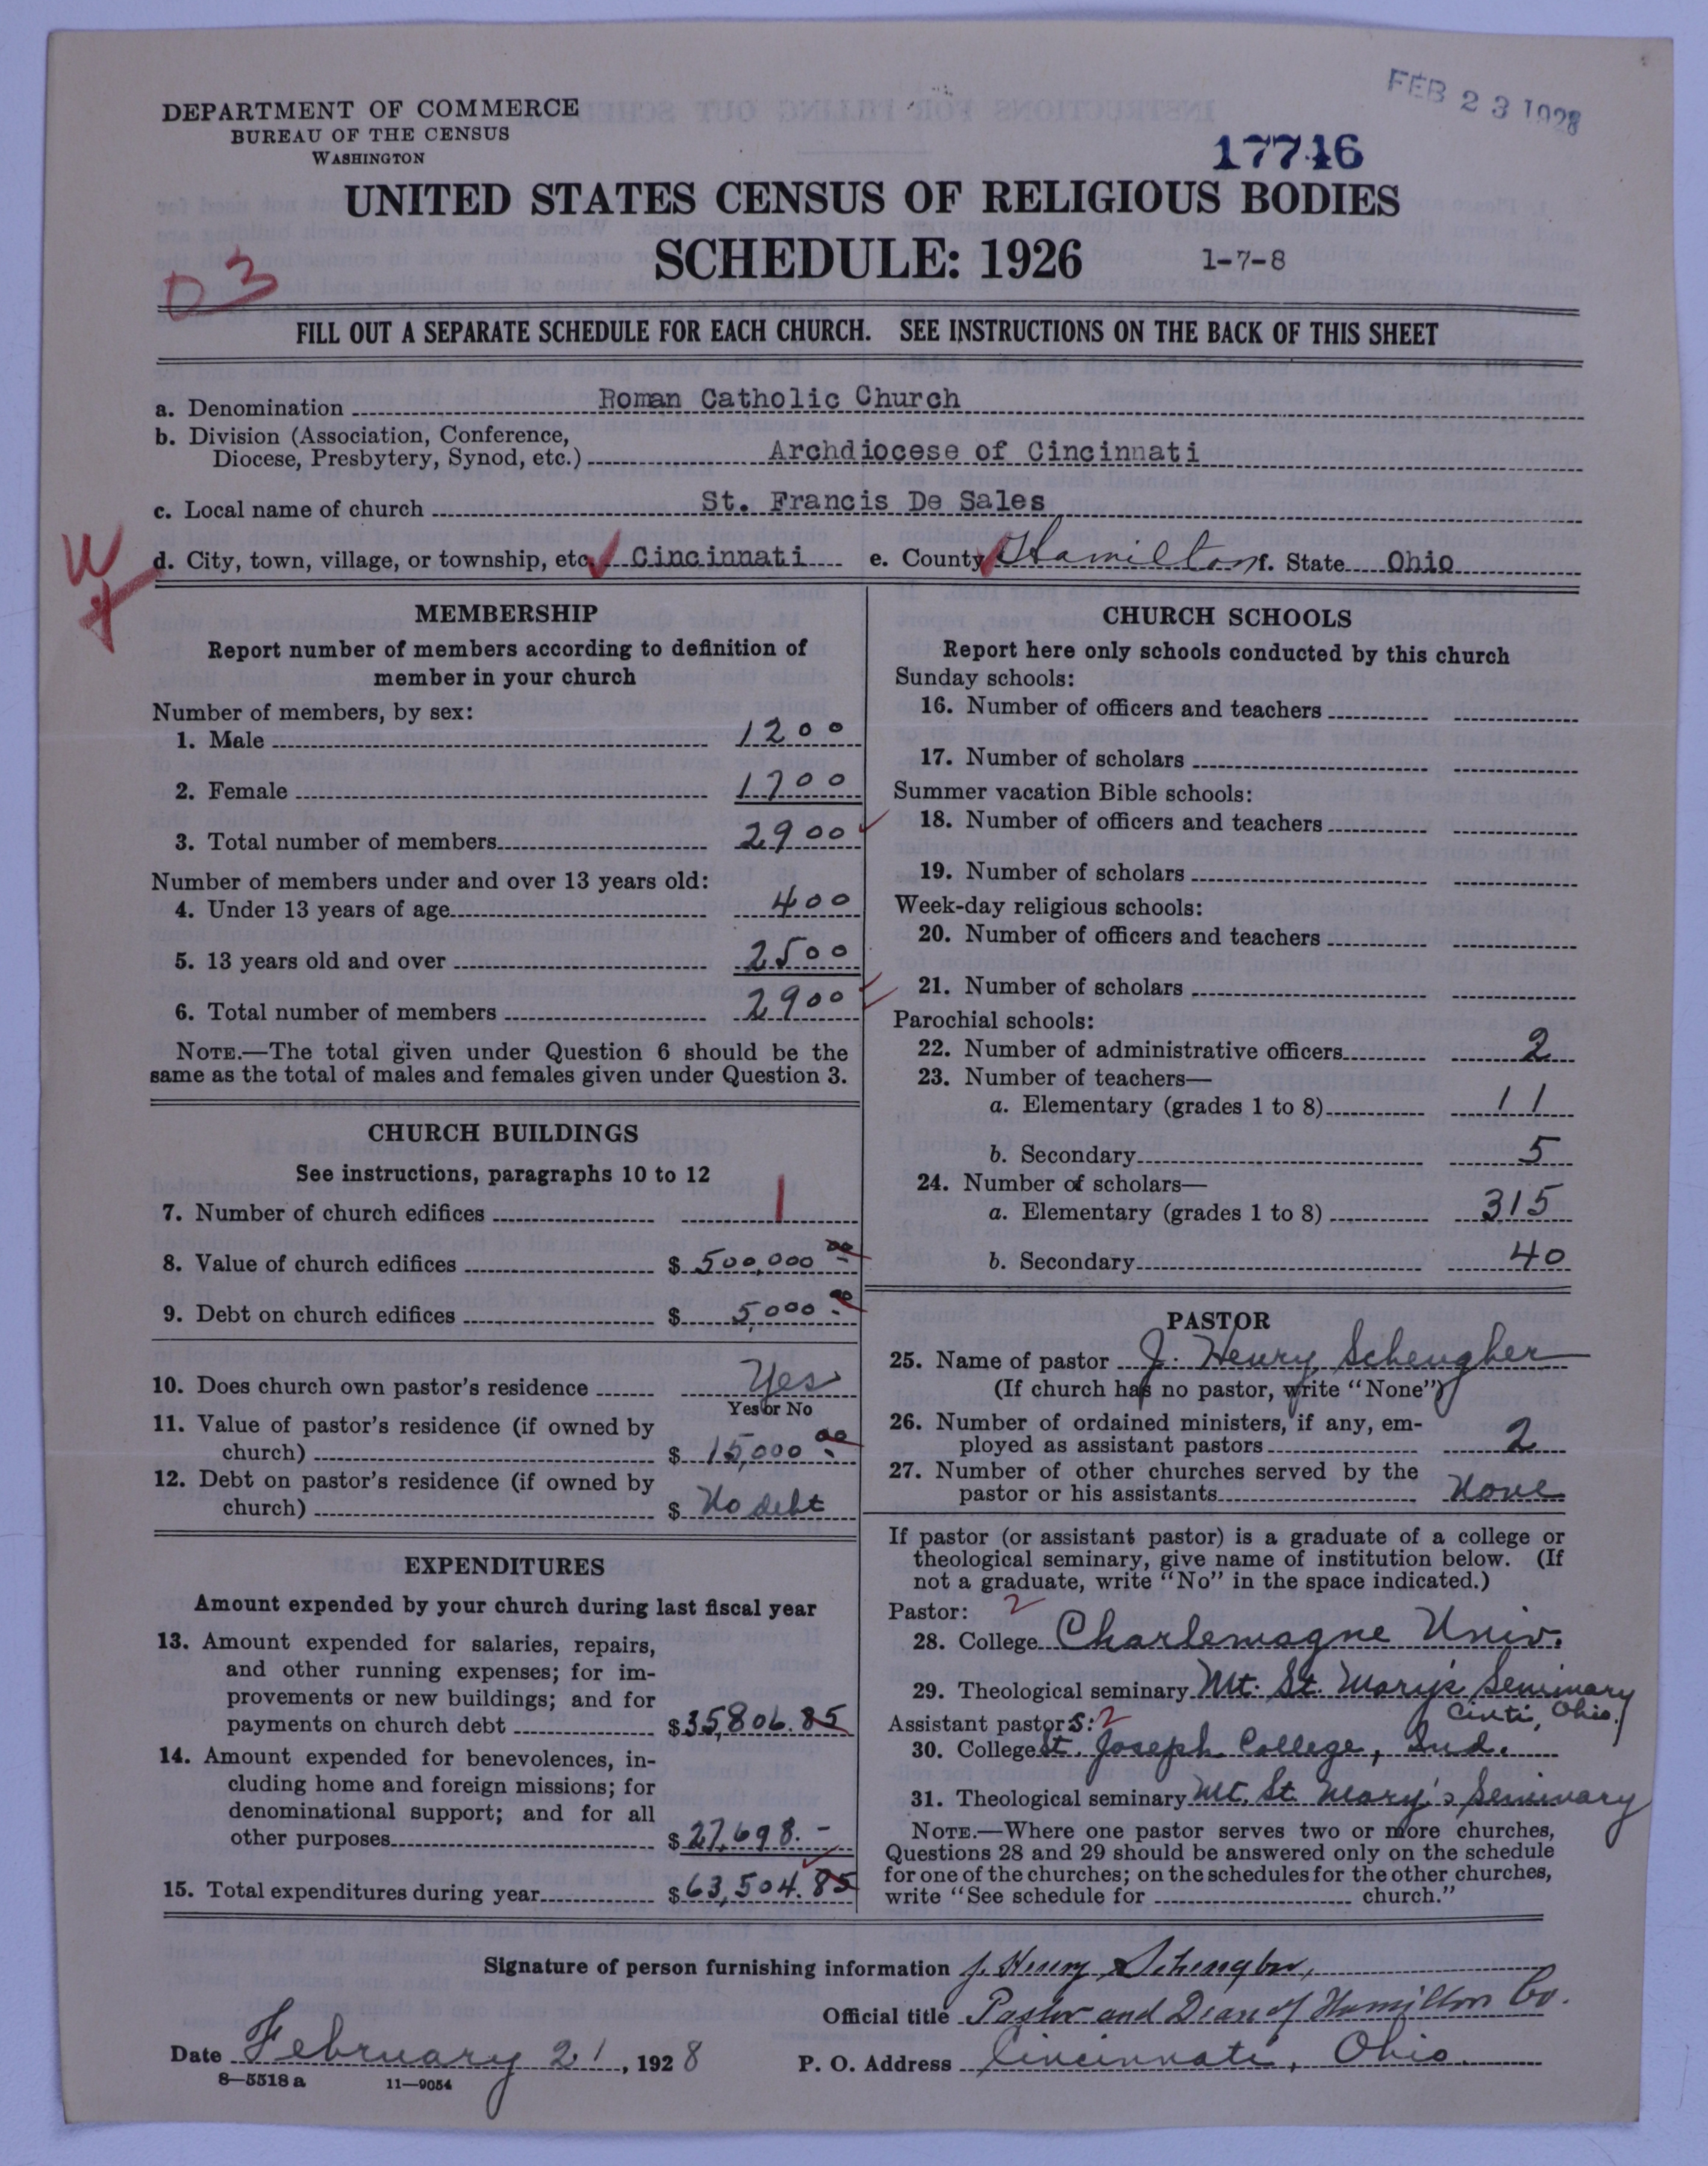 FEB 23 1928
DEPARTMENT OF COMMERCE
BUREAU OF THE CENSUS
WASHINGTON
17746
UNITED STATES CENSUS OF RELIGIOUS BODIES
SCHEDULE: 1926 1-7-8
03
FILL OUT A SEPARATE SCHEDULE FOR EACH CHURCH. SEE INSTRUCTIONS ON THE BACK OF THIS SHEET
a. Denomination Roman Catholic Church
b. Division (Association, Conference,
Diocese, Presbytery, Synod, etc.) Archdiocese of Cincinnati
c. Local name of church St. Francis De Sales
W
d. City, town, village, or township, etc. Cincinnati e. County Hamilton f. State Ohio
MEMBERSHIP
Report number of members according to definition of
member in your church
Number of members, by sex:
1. Male 1200
2. Female 1700
3. Total number of members 2900
Number of members under and over 13 years old:
4. Under 13 years of age 400
5. 13 years old and over 2500
6. Total number of members 2900
NOTE.—The total given under Question 6 should be the
same as the total of males and females given under Question 3.
CHURCH BUILDINGS
See instructions, paragraphs 10 to 12
7. Number of church edifices 1
8. Value of church edifices $ 500,000 00
9. Debt on church edifices $ 5,000.00
10. Does church own pastor's residence Yes
Yes or No
11. Value of pastor's residence (if owned by
church) $ 15,000 00
12. Debt on pastor's residence (if owned by
church) $ No debt
EXPENDITURES
Amount expended by your church during last fiscal year
13. Amount expended for salaries, repairs,
and other running expenses; for im-
provements or new buildings; and for
payments on church debt $ 35,806.85
14. Amount expended for benevolences, in-
cluding home and foreign missions; for
denominational support; and for all
other purposes $ 27,698.-
15. Total expenditures during year $ 63,504.85
CHURCH SCHOOLS
Report here only schools conducted by this church
Sunday schools:
16. Number of officers and teachers
17. Number of scholars
Summer vacation Bible schools:
18. Number of officers and teachers
19. Number of scholars
Week-day religious schools:
20. Number of officers and teachers
21. Number of scholars
Parochial schools:
22. Number of administrative officers 2
23. Number of teachers—
a. Elementary (grades 1 to 8) 11
b. Secondary 5
24. Number of scholars—
a. Elementary (grades 1 to 8) 315
b. Secondary 40
PASTOR
25. Name of pastor J. Henry Schengber
(If church has no pastor, write "None")
26. Number of ordained ministers, if any, em-
ployed as assistant pastors 2
27. Number of other churches served by the
pastor or his assistants None
If pastor (or assistant pastor) is a graduate of a college or
theological seminary, give name of institution below. (If
not a graduate, write "No" in the space indicated.)
Pastor: 2
28. College Charlemagne Univ.
29. Theological seminary Mt. St. Mary's Seminary
Cinti, Ohio.
Assistant pastors: 2
30. College St. Joseph College, Ind.
31. Theological seminary Mt. St. Mary's Seminary
NOTE.—Where one pastor serves two or more churches,
Questions 28 and 29 should be answered only on the schedule
for one of the churches; on the schedules for the other churches,
write "See schedule for church."
Signature of person furnishing information J. Henry Schengber,
Official title Pastor and Dean of Hamilton Co.
Date February 21, 1928 P. O. Address Cincinnati, Ohio.
8—5518 a 11—9054